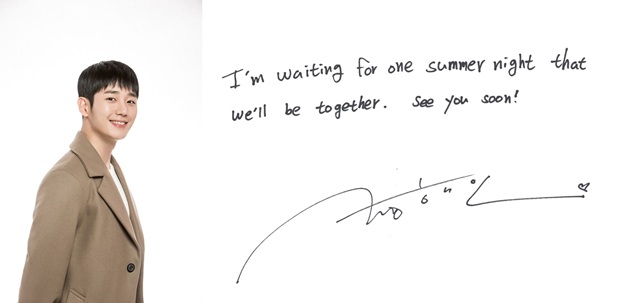 I'm waiting for one summer night that
we'll be together. See you soon!